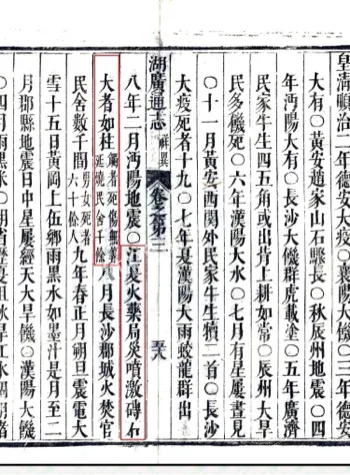 皇清順治二年德安大疫○三年德安
大有○黃安趙家山石縣長○秋辰州地震○四
年沔陽大有○長沙大饑群虎載塗○五年廣濟
民家牛生四五角或出背上耕如常○辰州大旱
民多饑死○六年漢陽大水○七月有星屢晝見
○十一月黃安西関外民家牛生犢二首○長沙
大疫死者十九○七年夏漢陽大雨蛟龍群出
湖廣通志 祥異 卷之第三
八年二月沔陽地震○江夏火藥局災噴激磚石
大者如柱觸者死傷無算延燒民舍千餘八月長沙郡城火焚官
民舍數千間男女死者六十餘人九年春正月朔旦震電大
雪十五日黃岡上伍鄉雨黑水如墨汁是月至二
月郡縣地震日中星屢經天大旱饑○漢陽大饑
○四月雨黑水○